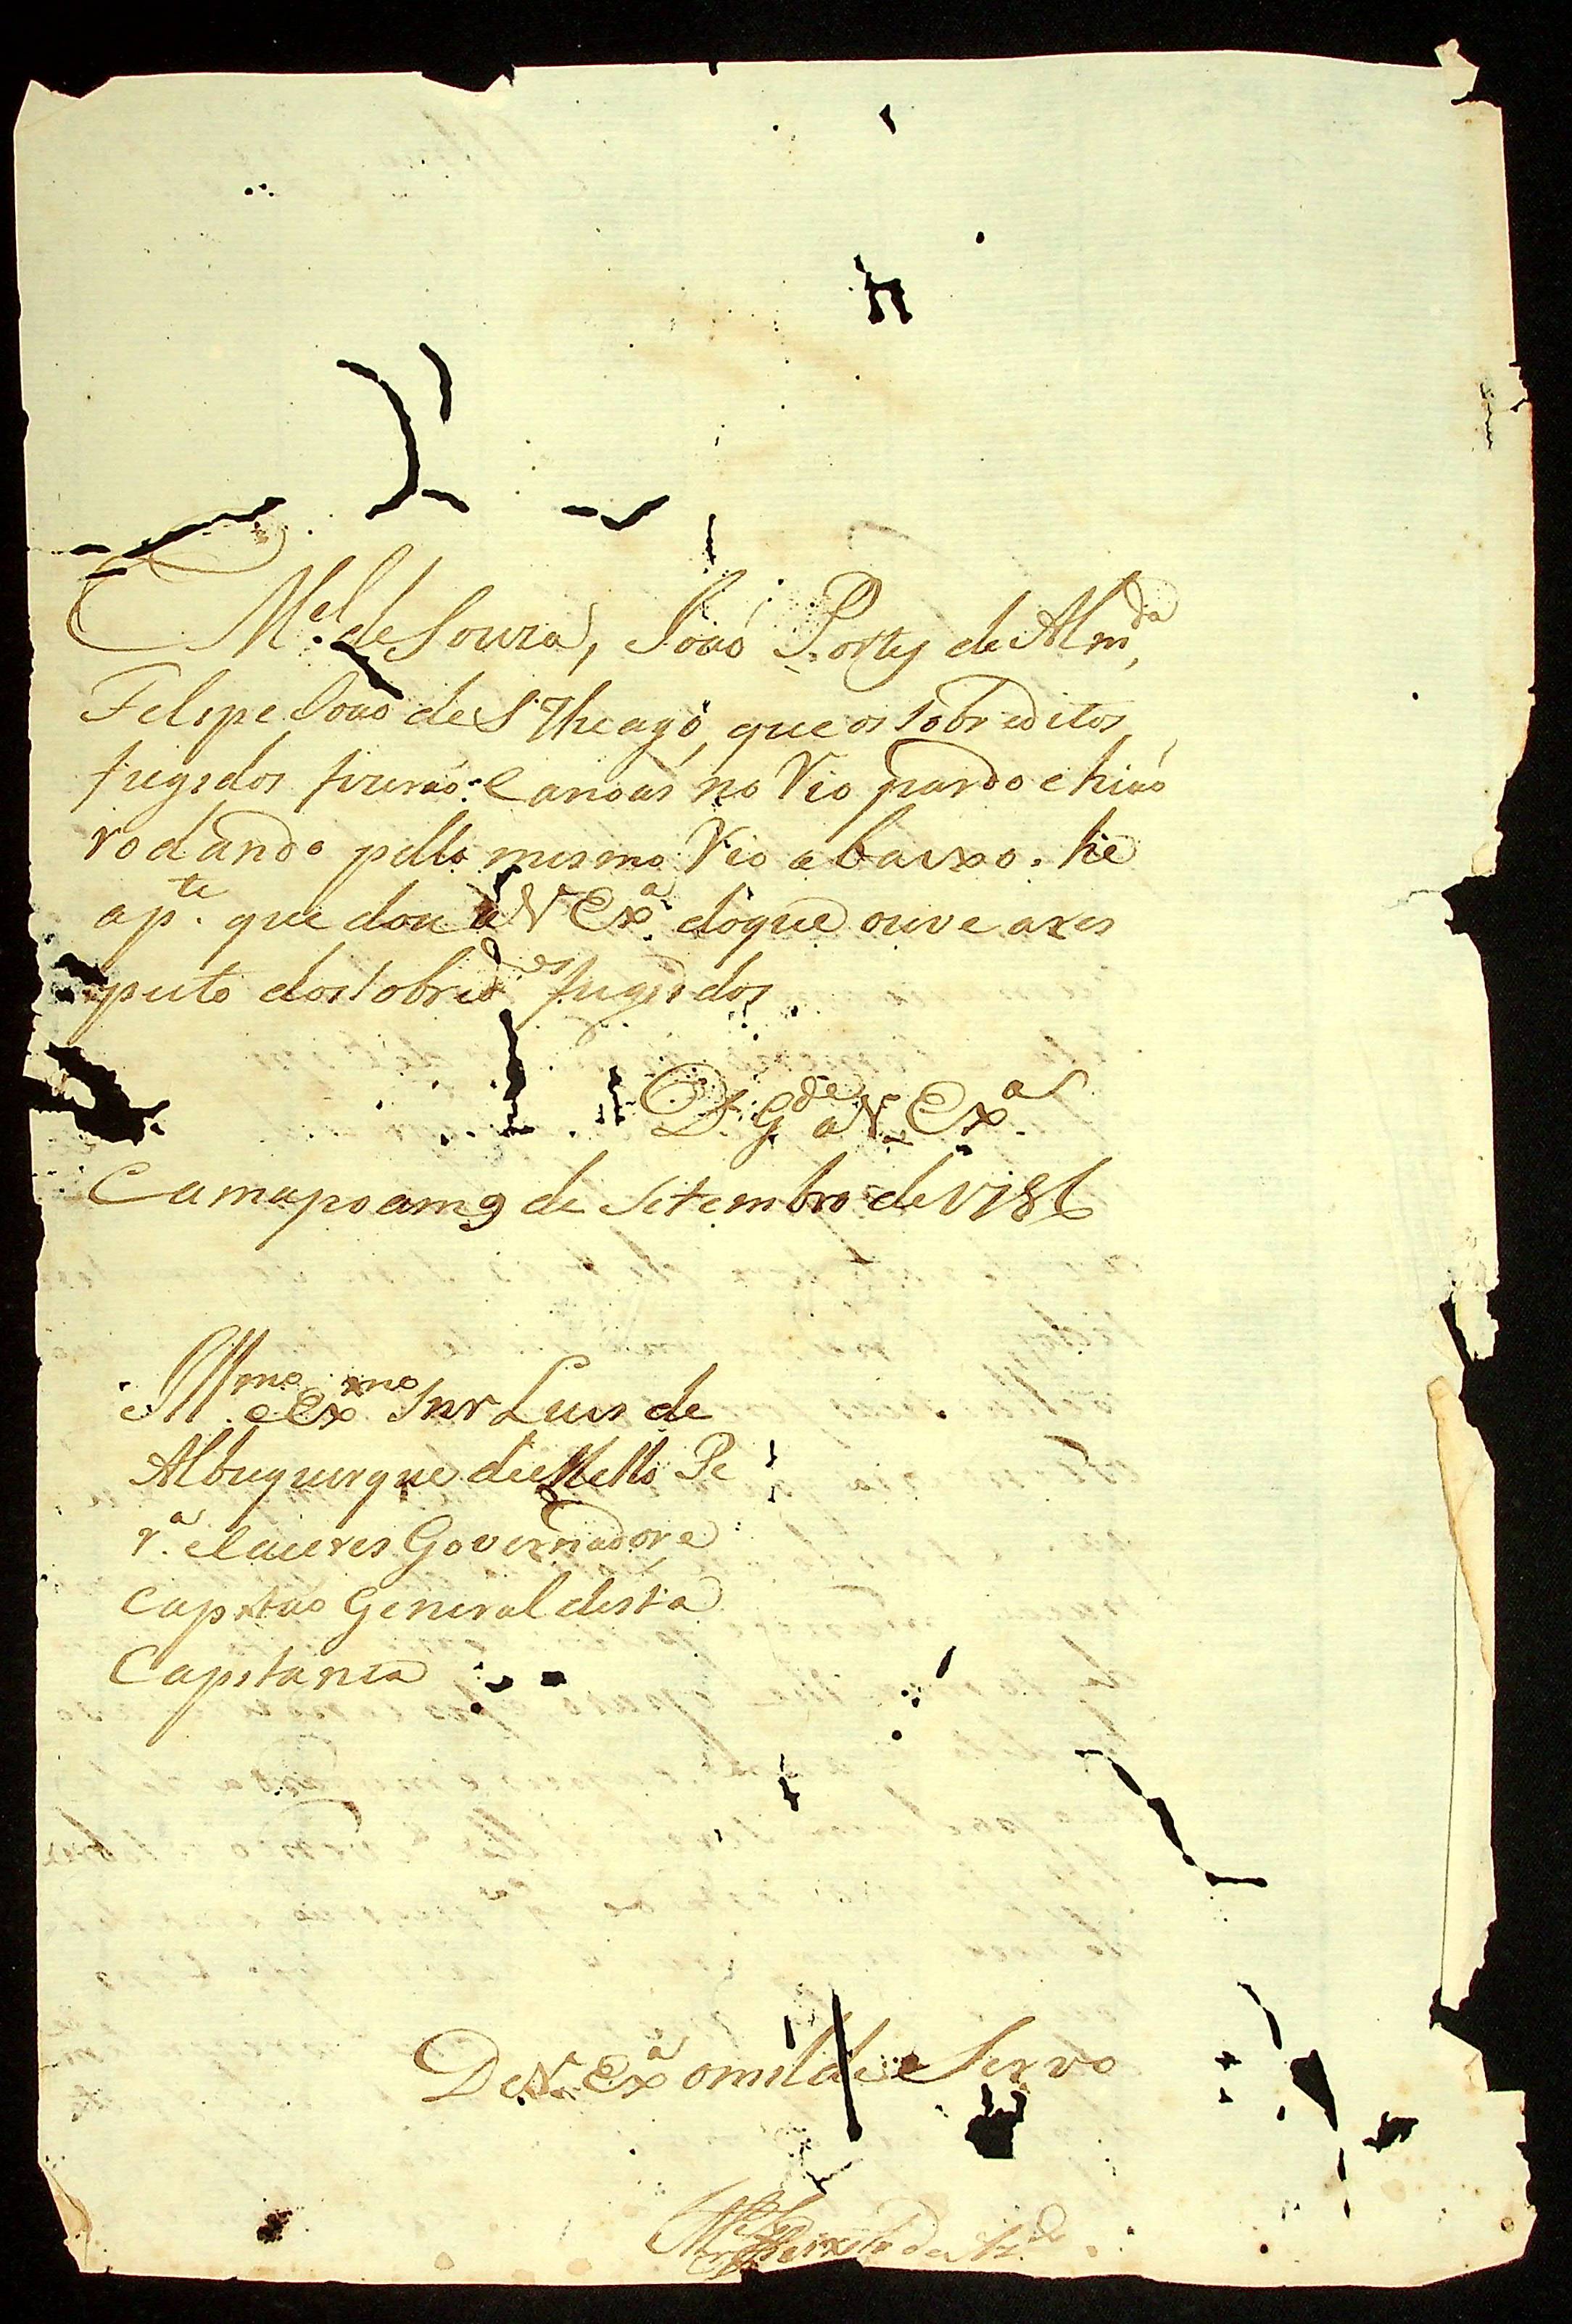 M.el de Souza, Joaõ Portes de Alm.da,
Felipe Joaõ de S Theago, que os sobreditos
fugidos furaraõ Canoas no Rio pardo e hiaõ
rodando pello mesmo Rio abaixo. he
a p.te que dou a V Ex.a do que ouve a res
peito dos sobred.os fugidos.
D.s G.de a V. Ex.a
Camapoam 9 de Setembro de 1786
Ill.mo e Ex.mo Snr Luis de
Albuquerque de Mello Pe
r.a e Caceres Governador e
Capitaõ General desta
Capitania
De V. Ex.a omilde Servo